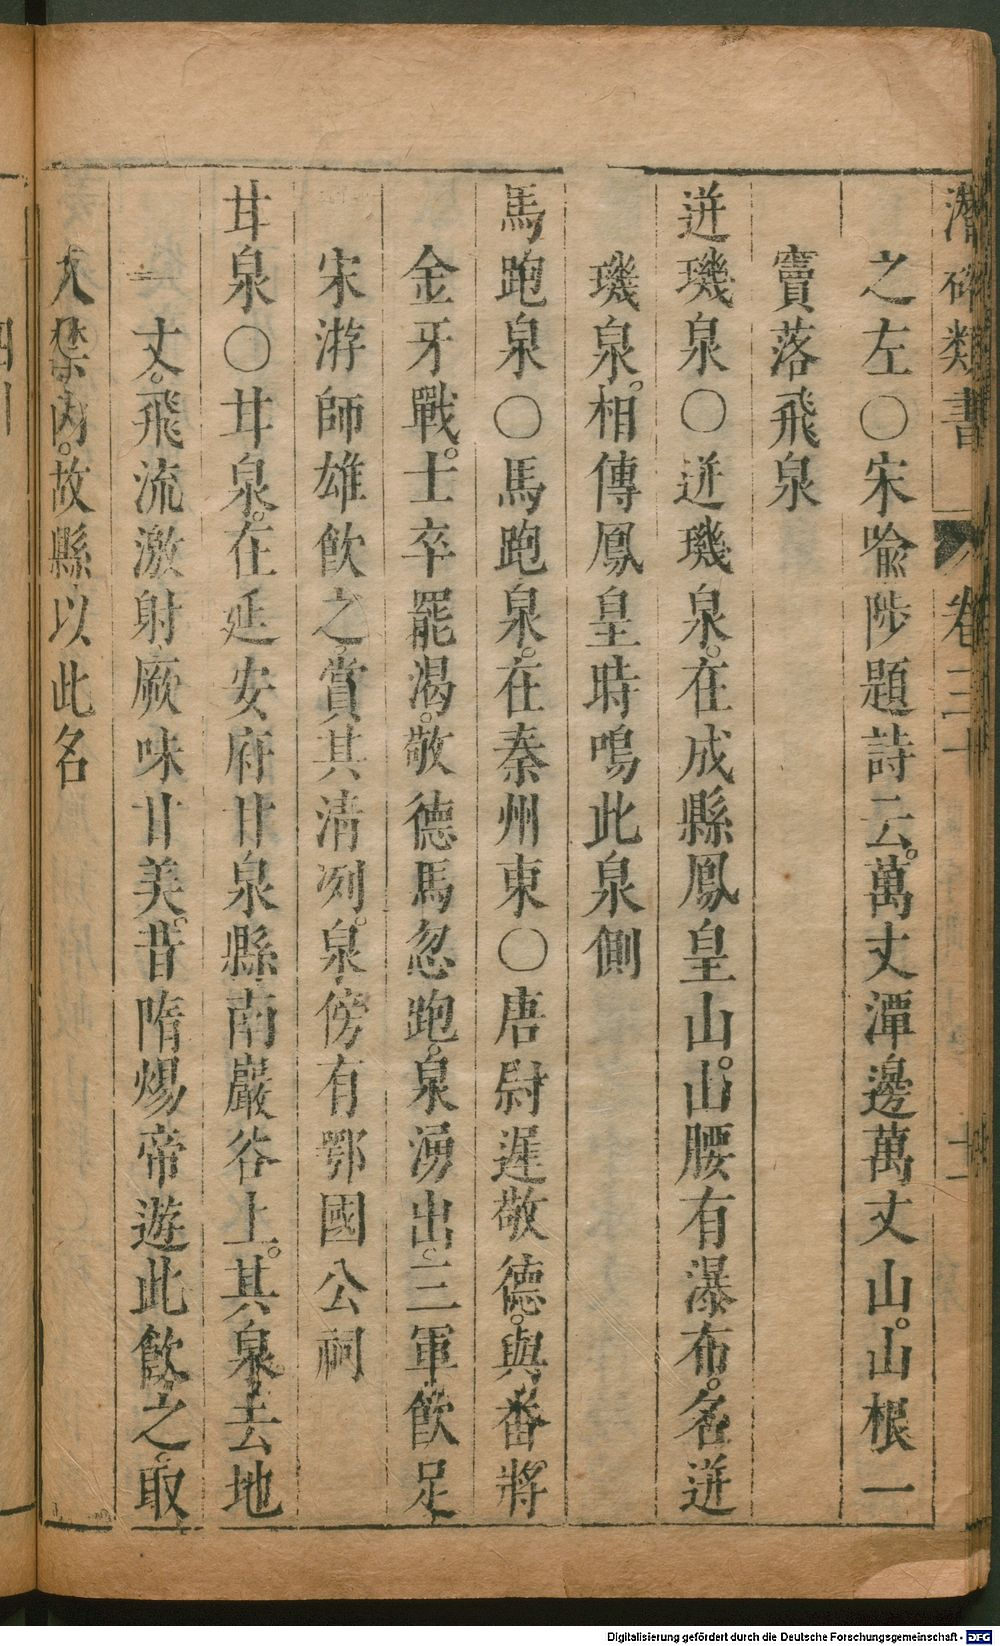 潛確類書 卷三十 十一
之左〇宋喩陟題詩云。萬丈潭邊萬丈山。山根一
竇落飛泉
迸璣泉〇迸璣泉。在成縣鳳皇山。山腰有瀑布。名迸
璣泉。相傳鳳皇時鳴此泉側
馬跑泉〇馬跑泉。在秦州東〇唐尉遲敬德。與番將
金牙戰。士卒罷渴。敬德馬忽跑。泉湧出。三軍飮足
宋游師雄飮之。賞其清冽。泉傍有鄂國公祠
甘泉〇甘泉。在延安府甘泉縣南嚴谷上。其泉去地
一丈。飛流激射。厥味甘美。昔隋煬帝遊此飮之。取
入禁內。故縣以此名
Digitalisierung gefördert durch die Deutsche Forschungsgemeinschaft - DFG